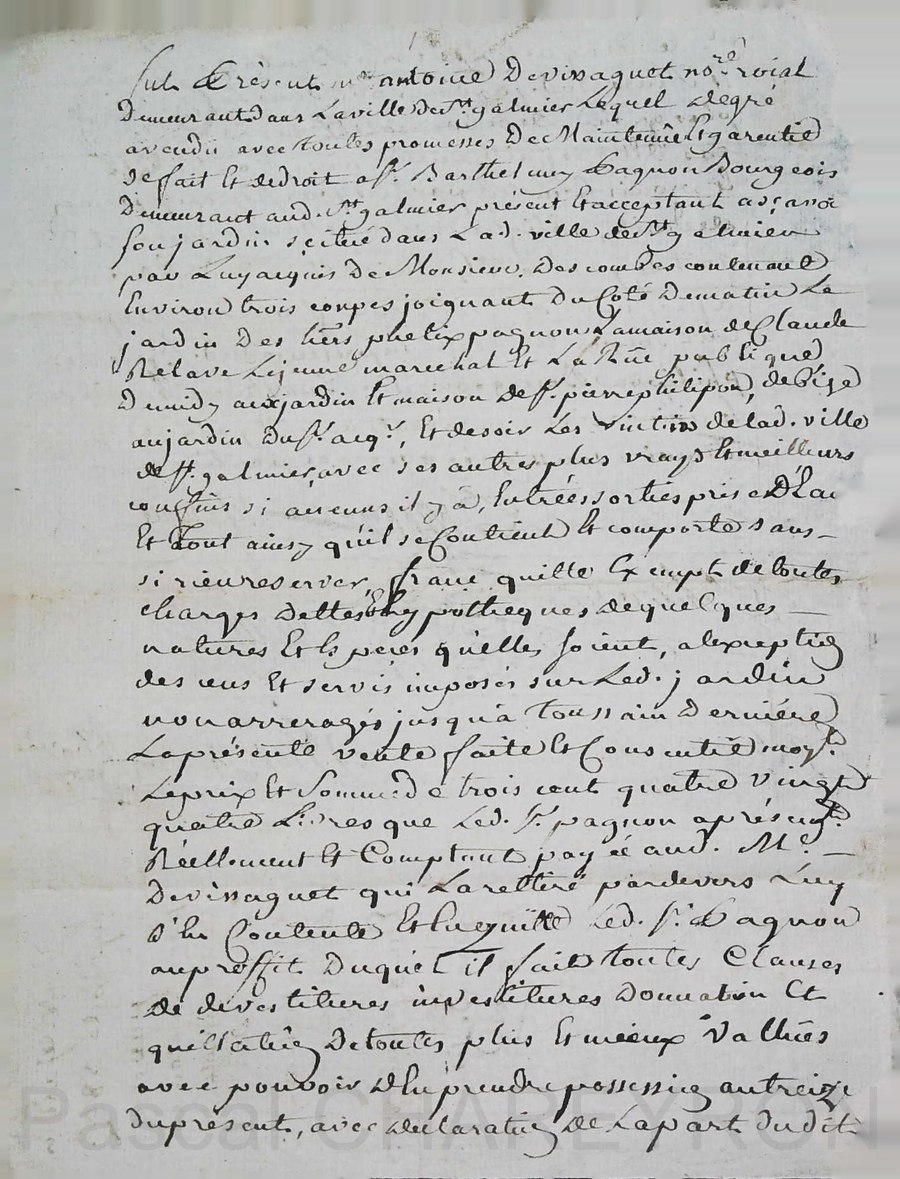 fut présent me antoine Devissaguet nore roial
Demeurant dans La ville de St galmier Lequel degré
a vendu avec toutes promesses De Maintenüe Et garentie
de fait Et de droit a Sr. Barthelmy Pagnon Bourgeois
Demeurant aud. St galmier présent Et acceptant a sçavoir
son jardin scitué dans Lad. ville de St galmier
par Luy acquis De Monsieur Descombes contenant
Environ trois coupes joignant du Coté De matin Le
jardin Des hers phelix pagnon La maison de Claude
Relave Lejeune marechal Et La Rüe publique
De midy aux jardin Et maison De Sr. pierre philipon, de bize
au jardin du Sr. acqr., Et de soir Les de lad. ville
de St. galmier, avec ses autres plus vrays Et meilleurs
confins si aucuns il y a, Entrées sorties prise D'Eau
Et Tout ainsy qu'il se Contient Et comporte sans
si rien reserver, franc quitte Exempt de toutes
charges Dettes Et hypotheques de quelques
natures Et Especes qu'elles soient, a l'exception
des cens Et servis imposés sur Led. jardin
non arreragés jusqu'a Toussain Derniére
La présente vente faite Et Consentie moyt.
Le prix Et Somme de trois cent quatre vingt
quatre Livres que Led. Sr. pagnon a présent.
Réellement Et Comptant payée aud. Me.
Devissaguet qui La rettiré par devers Luy
s'En Contente Et En quitte Led. Sr. Pagnon
au proffit Duquel il fait toutes Clauses
De devestitures investitures Donnation Et
quittation De toutes plus Et mieux Vallües
avec pouvoir D'En prendre possession au treize
du présent, avec declaration De La part du dit
Pascal CHAPEYRON